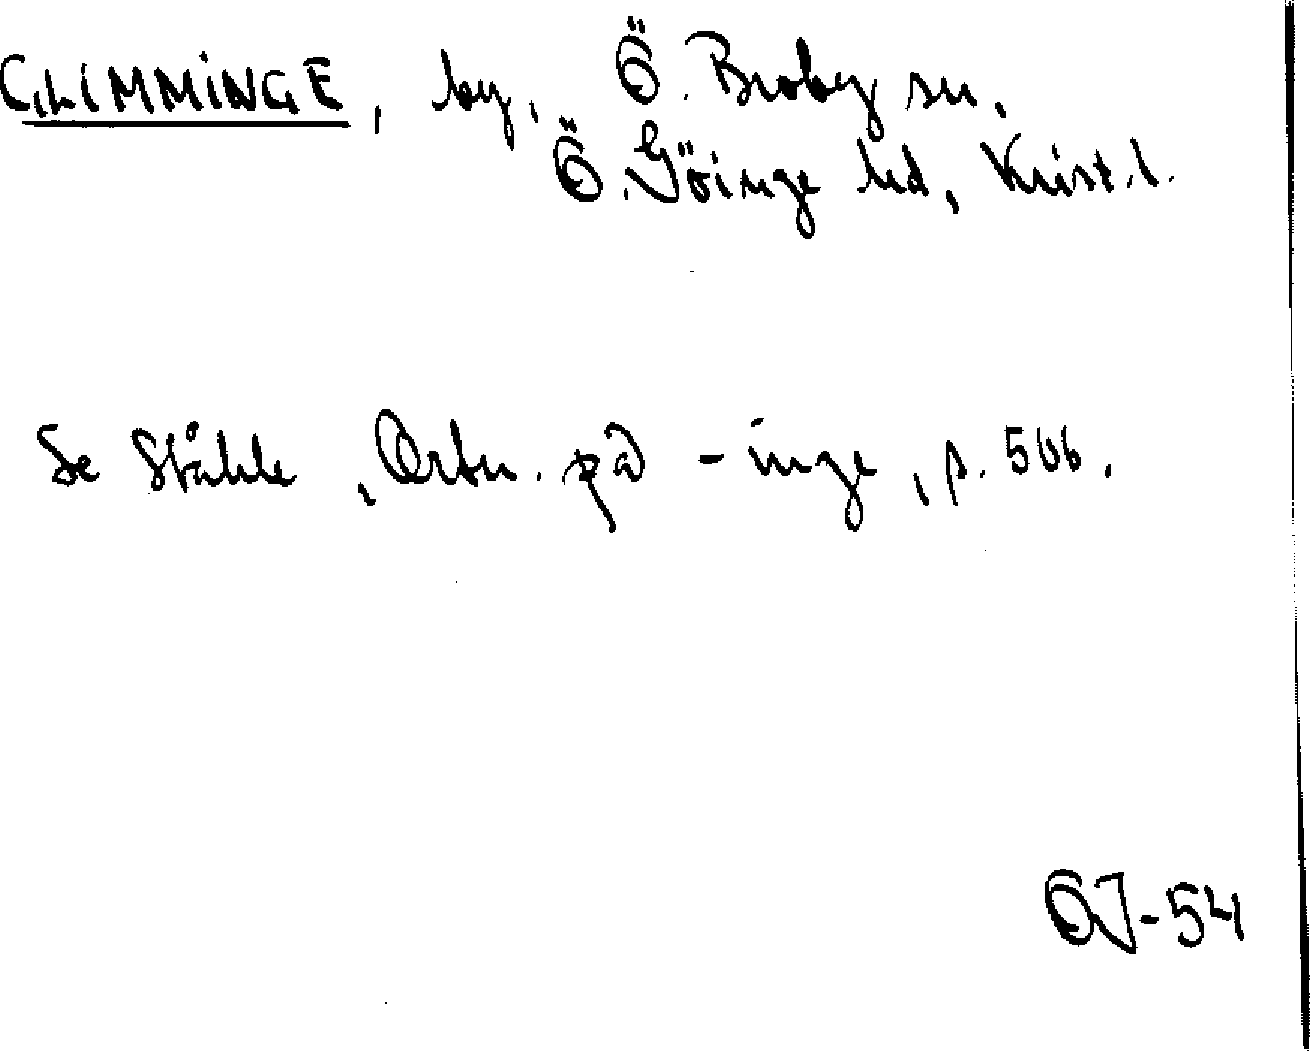 GLIMMINGE, by, Ö. Broby sn.
Ö. Göinge hd, Krist. l.
Se Ståhle, Ortn. på -inge, p. 506.
OJ-54